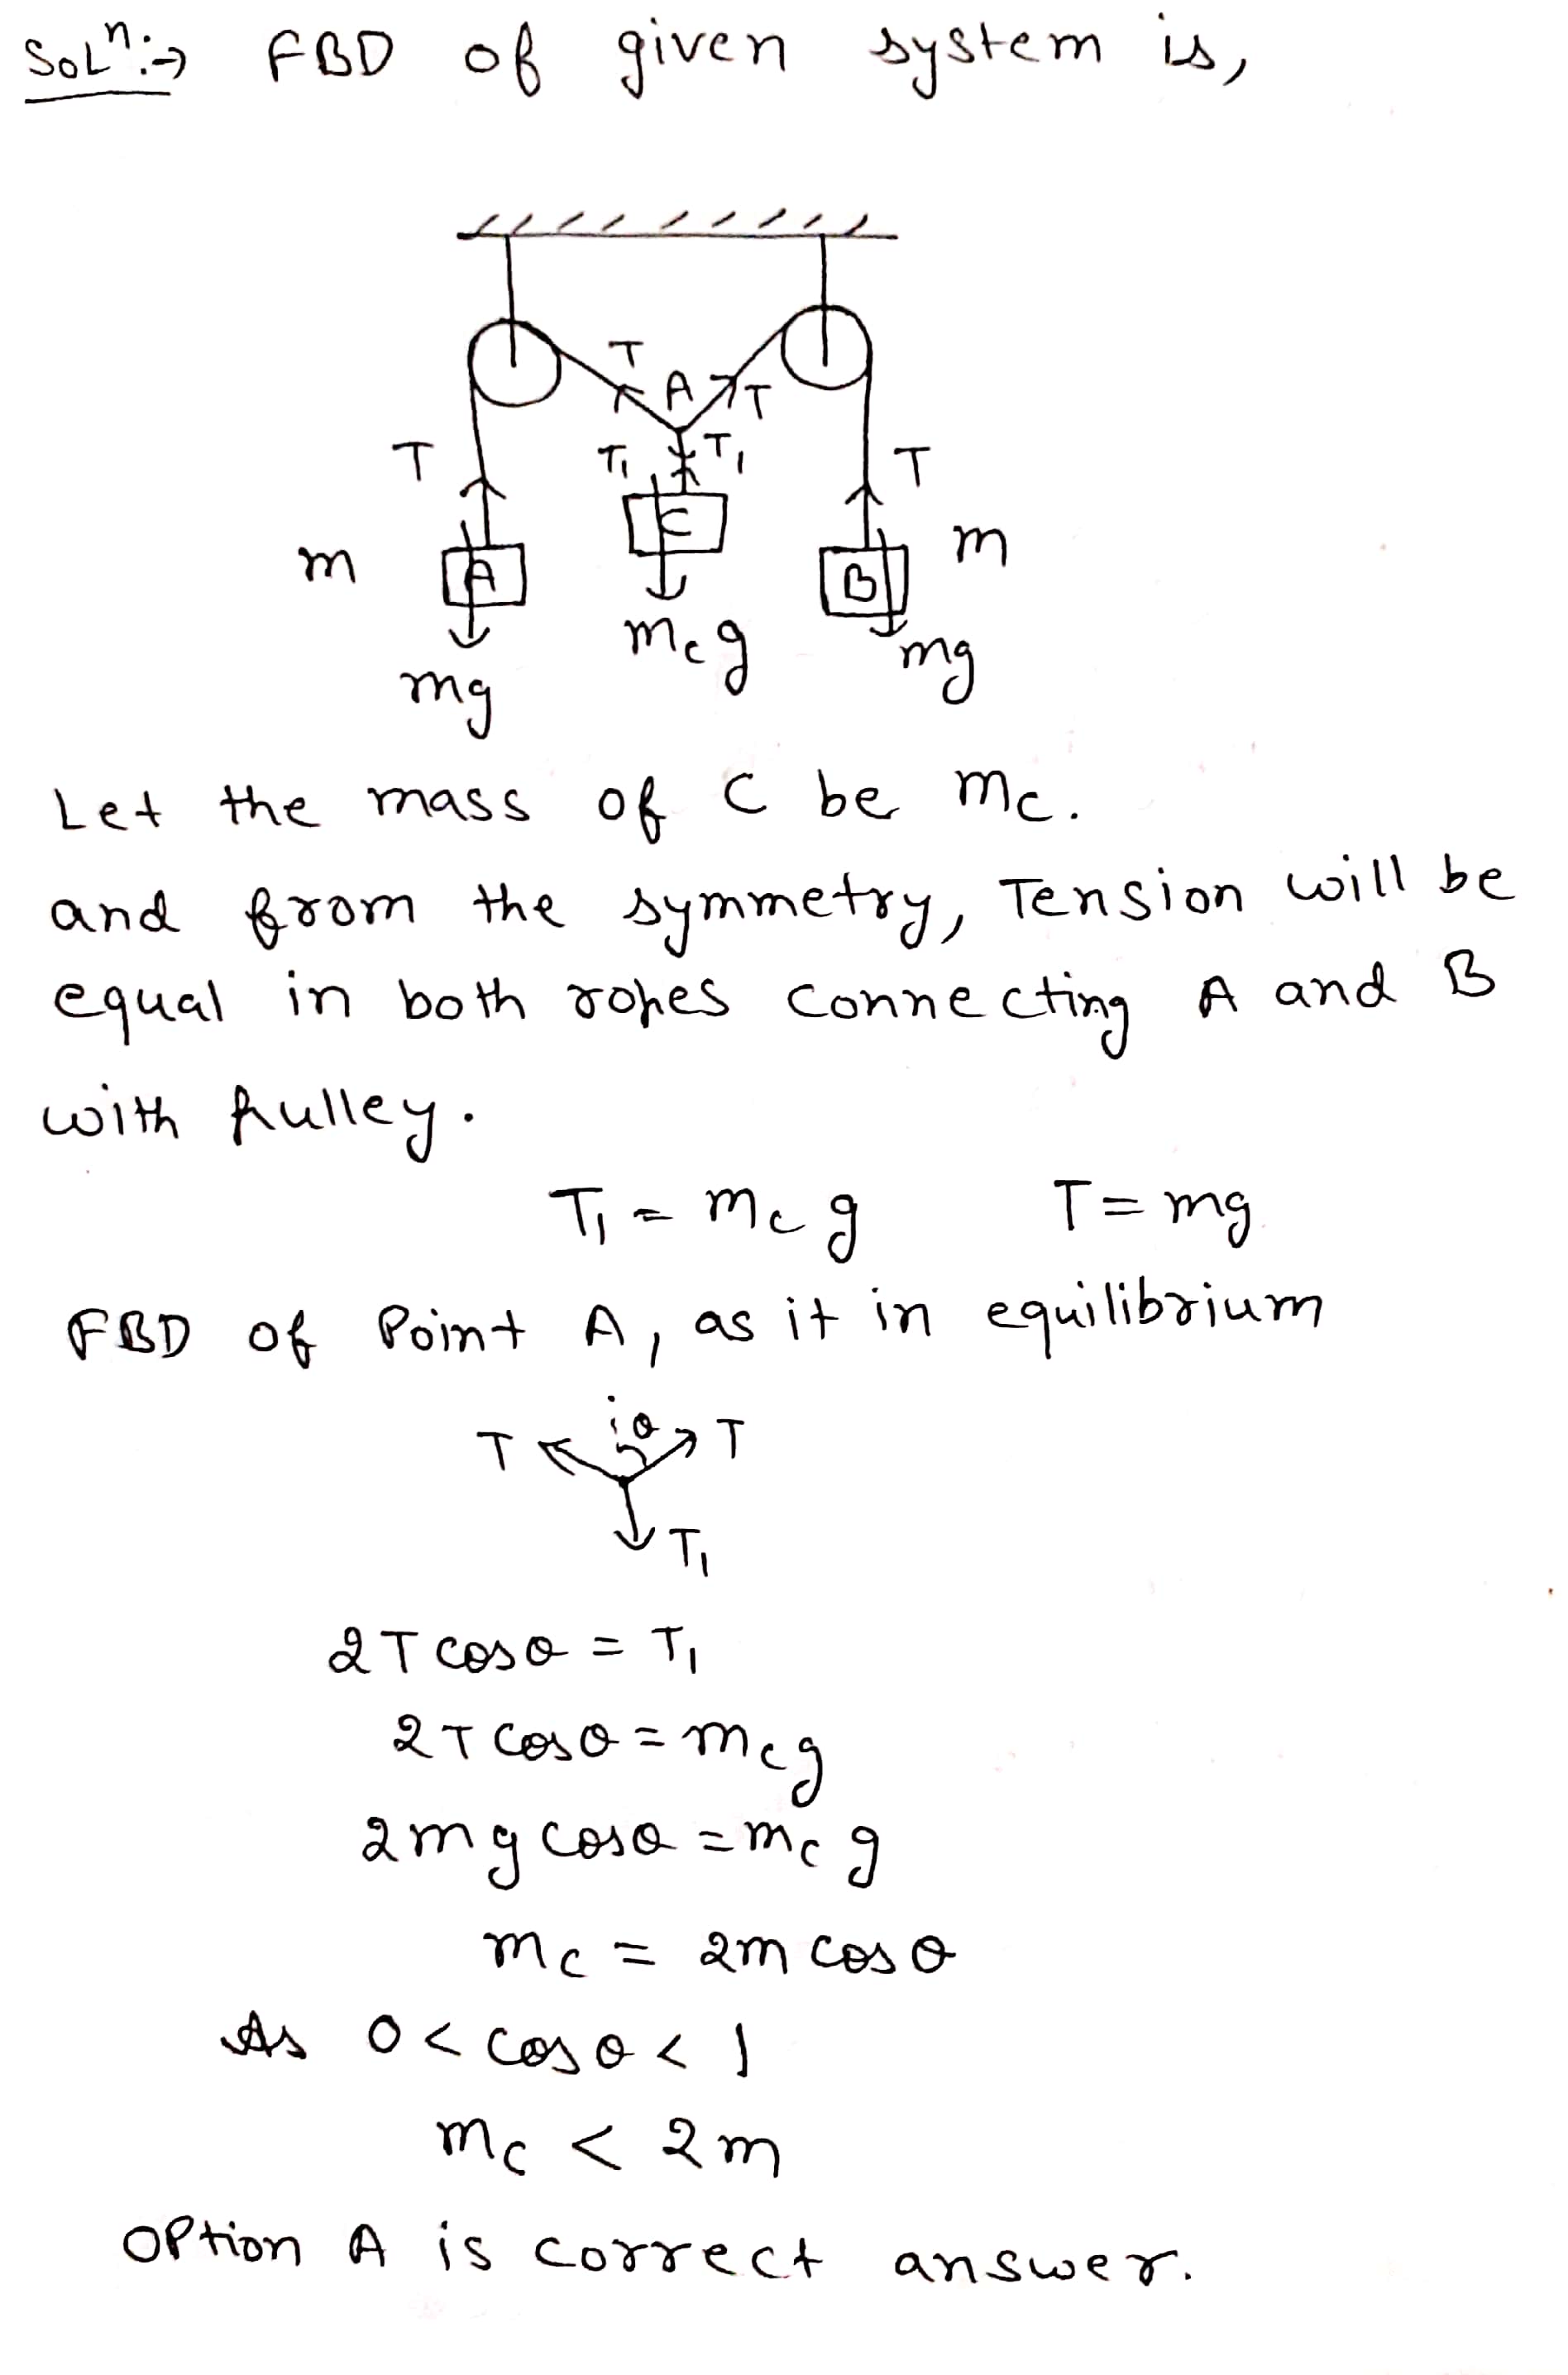 Solⁿ:→ FBD of given system is,
T
A
T
T T₁ T₁ T
m A C B m
mg m_c g mg
Let the mass of C be m_c.
and from the symmetry, Tension will be
equal in both ropes connecting A and B
with pulley.
T₁ = m_c g T = mg
FBD of Point A, as it in equilibrium
T θ T
T₁
2T cosθ = T₁
2T cosθ = m_c g
2mg cosθ = m_c g
m_c = 2m cosθ
As 0 < cosθ < 1
m_c < 2m
Option A is correct answer.